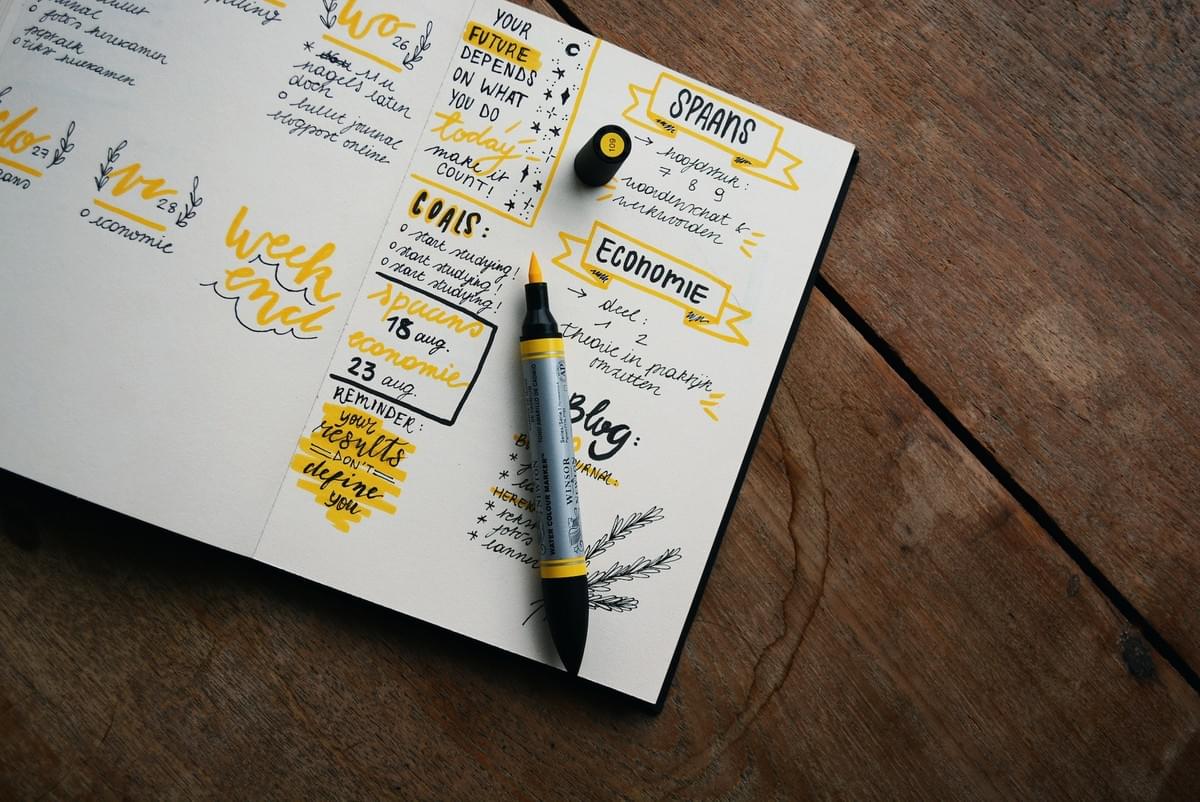 o foto's herexamen
o tekst herexamen
wo 26
* 11 u
nagels laten
doen
o bullet journal
blogpost online
do 27
vr 28
o economie
week
end
YOUR
FUTURE
DEPENDS
ON WHAT
YOU DO
today
make it
COUNT!
GOALS:
o start studying!
o start studying!
o start studying!
spaans
18 aug.
economie
23 aug.
REMINDER:
your
results
DON'T
define
you
SPAANS
→ hoofdstuk:
7 8 9
woordenschat &
werkwoorden
ECONOMIE
→ deel:
1 2
theorie in praktijk
omzetten
Blog:
* foto's
109
WINSOR
WATER COLOUR MARKER™